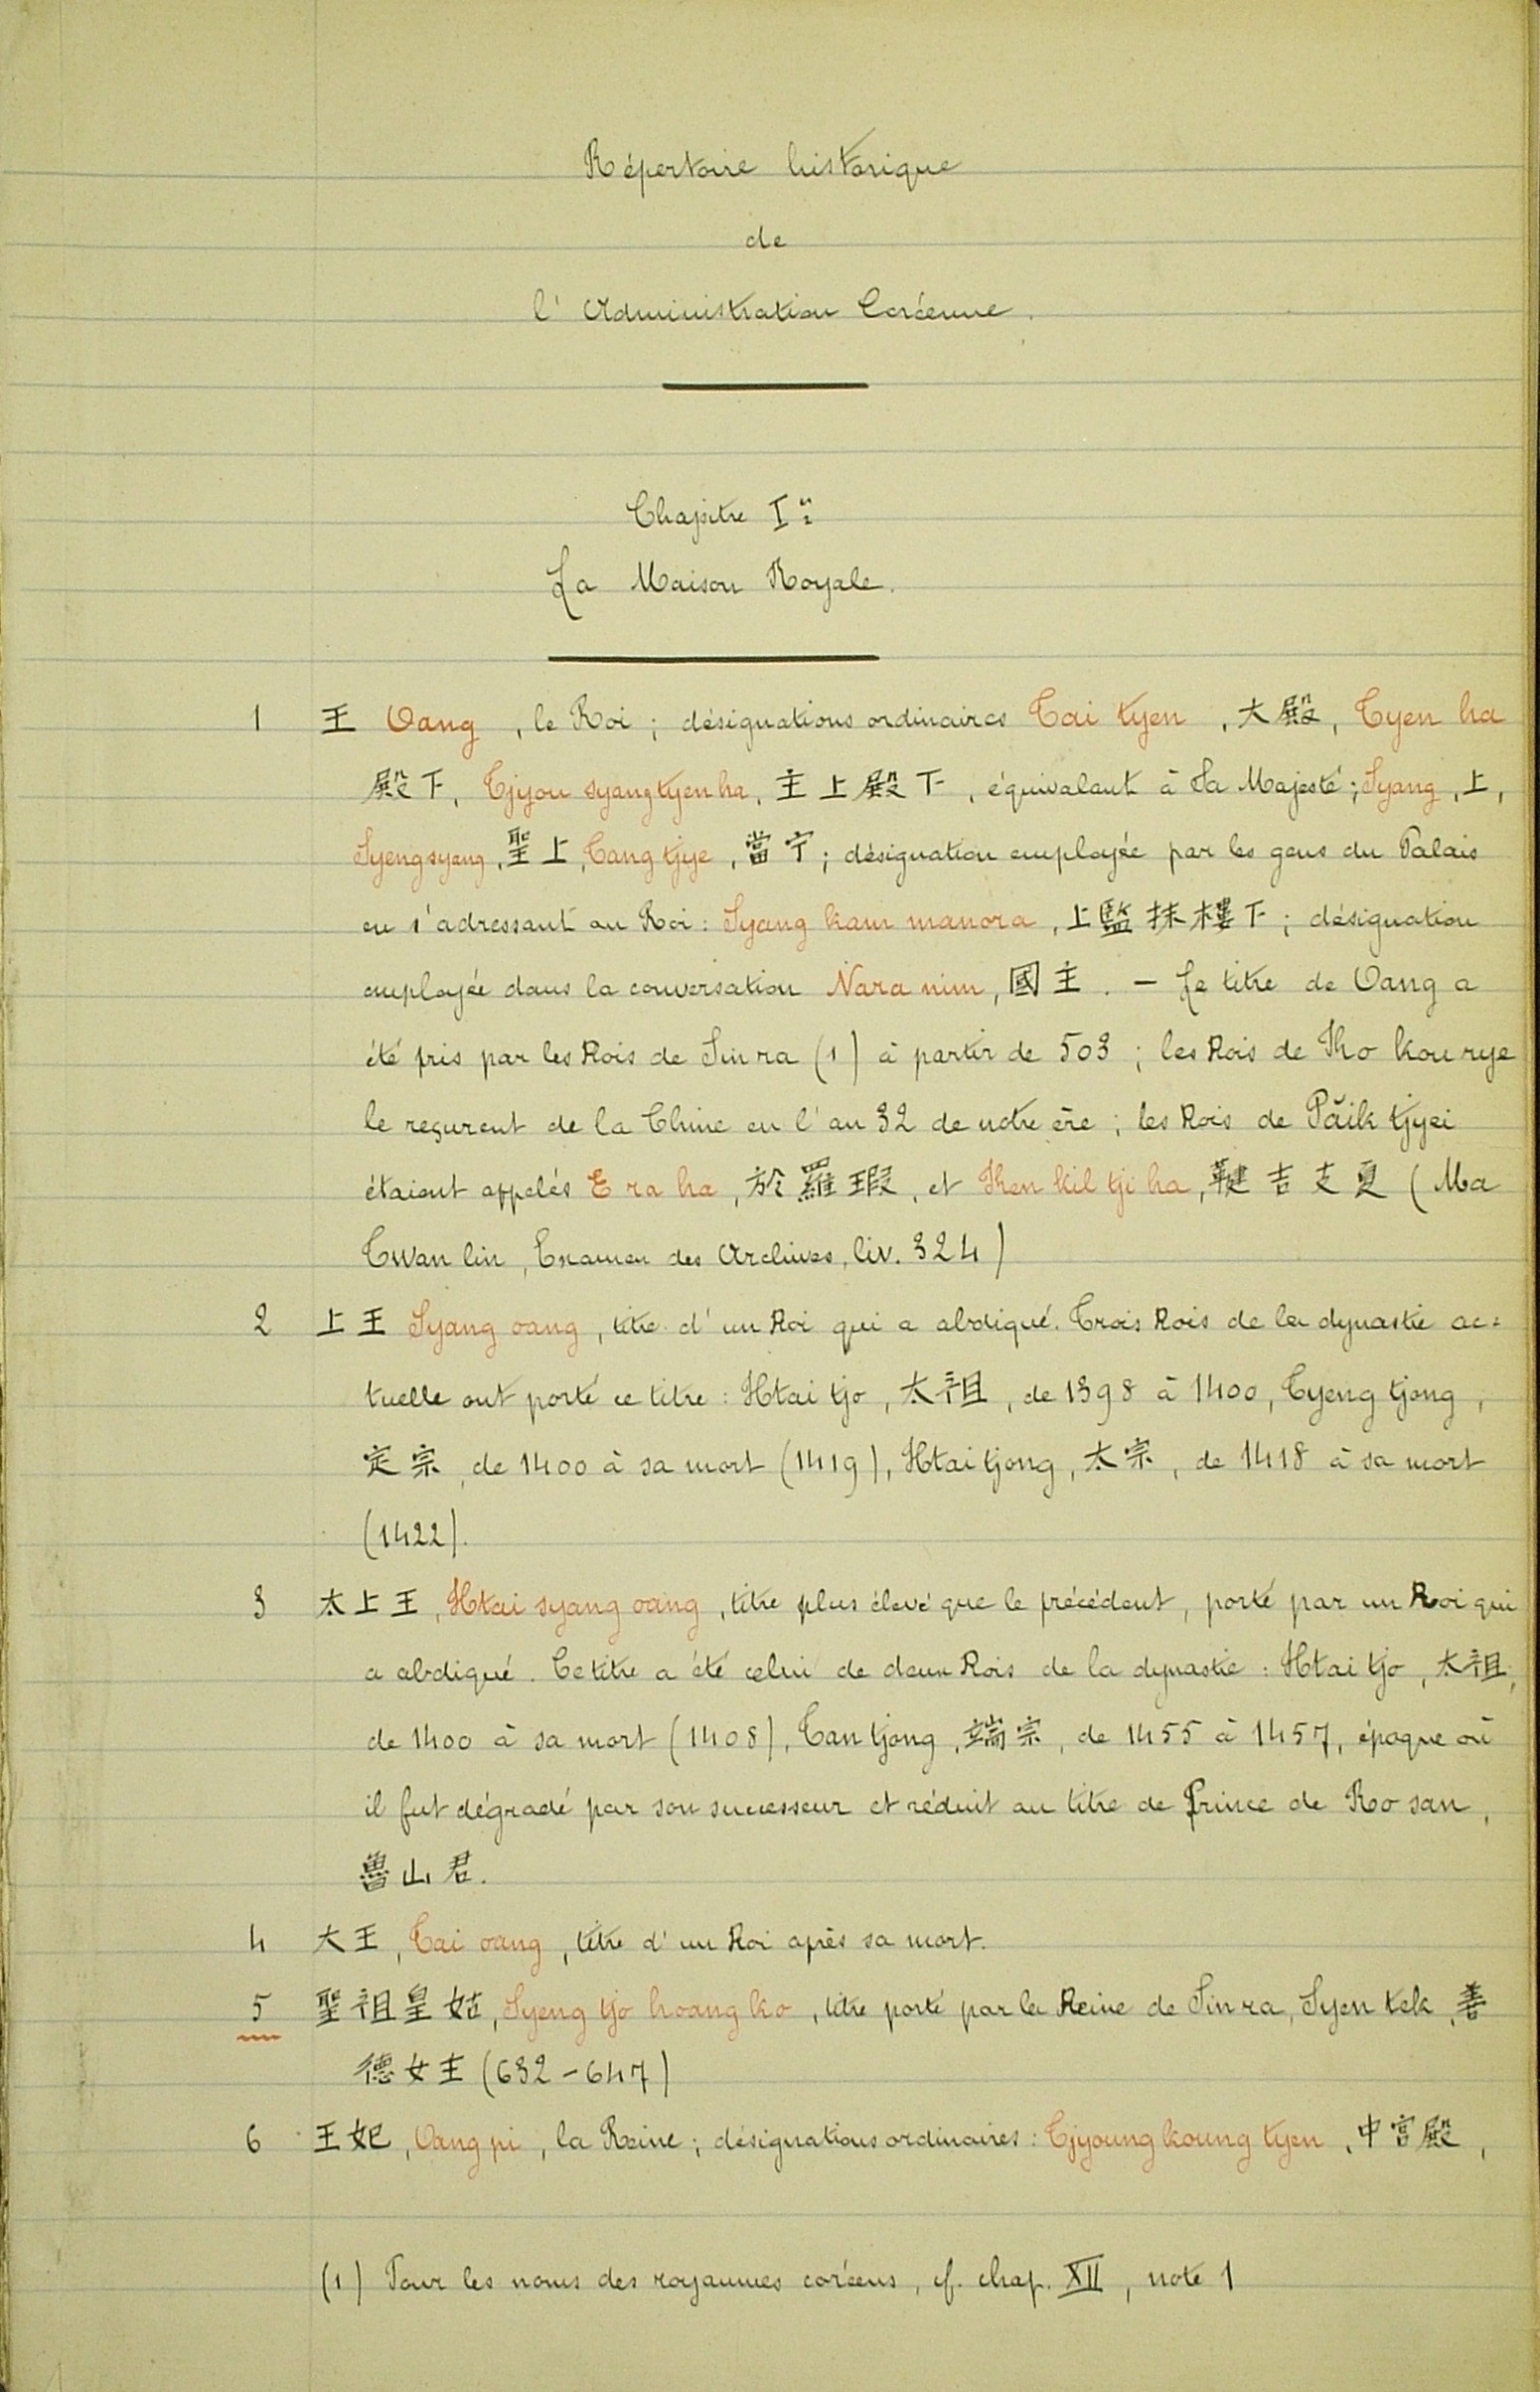 Répertoire historique
de
l'Administration Coréenne.
Chapitre Ier
La Maison Royale.
1 王 Oang, le Roi; désignations ordinaires Tai tyen, 大殿, Tyen ha
殿下, Tjyou syang tyen ha, 主上殿下, équivalant à Sa Majesté; Syang, 上,
Syeng syang, 聖上, Tang tjye, 當宁; désignation employée par les gens du Palais
en s'adressant au Roi: Syang kam manora, 上監抹樓下; désignation
employée dans la conversation Nara nim, 國主. — Le titre de Oang a
été pris par les Rois de Sin ra (1) à partir de 503; les Rois de Kho kou rye
le reçurent de la Chine en l'an 32 de notre ère; les Rois de Päik tjyei
étaient appelés E ra ha, 於羅瑕, et Khen kil tji ha, 鞬吉支夏 (Ma
Twan lin, Examen des Archives, liv. 324)
2 上王 Syang oang, titre d'un Roi qui a abdiqué. Trois Rois de la dynastie ac=
tuelle ont porté ce titre: Htai tjo, 太祖, de 1398 à 1400, Tyeng tjong,
定宗, de 1400 à sa mort (1419), Htai tjong, 太宗, de 1418 à sa mort
(1422).
3 太上王, Htai syang oang, titre plus élevé que le précédent, porté par un Roi qui
a abdiqué. Ce titre a été celui de deux Rois de la dynastie: Htai tjo, 太祖,
de 1400 à sa mort (1408), Tan tjong, 端宗, de 1455 à 1457, époque où
il fut dégradé par son successeur et réduit au titre de Prince de Ro san,
魯山君.
4 大王, Tai oang, titre d'un Roi après sa mort.
5 聖祖皇姑, Syeng tjo hoang ko, titre porté par la Reine de Sin ra, Syen tek, 善
德女主 (632-647)
6 王妃, Oang pi, la Reine; désignations ordinaires: Tjyoung koung tyen, 中宮殿,
(1) Pour les noms des royaumes coréens, cf. chap. XII, note 1